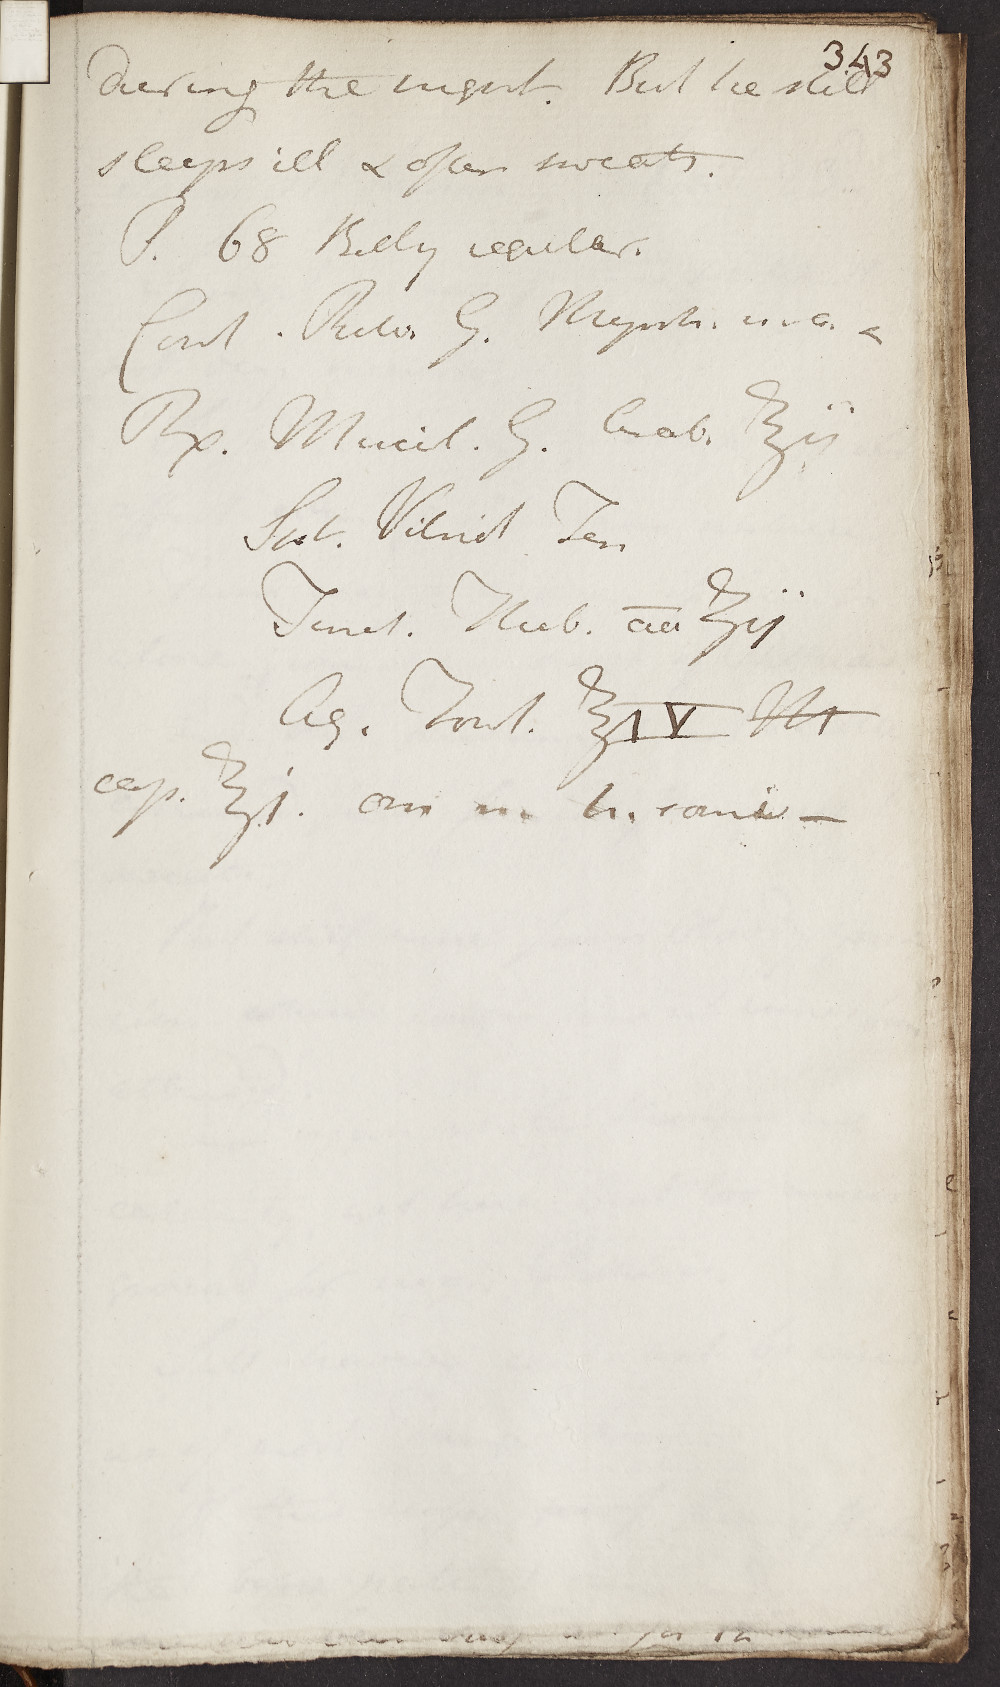 343
During the night. But he still
sleeps ill & often sweats.
P. 68 Belly regular.
Cont. Pulv. G. Myrrh. &
Rx. Mucil. G. Arab. ℥ij
Sp. Vitriol Ten
Tinct. Theb. āā ʒij
Aq. Font. ℥IV M
cap. ℥j. om n. h. somni —